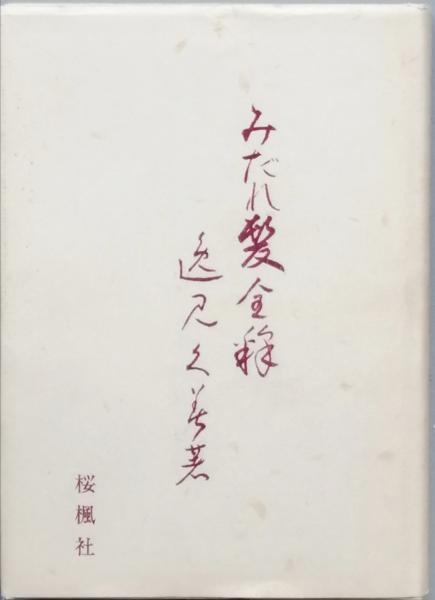 みだれ髪全釋
逸見久美著
桜楓社